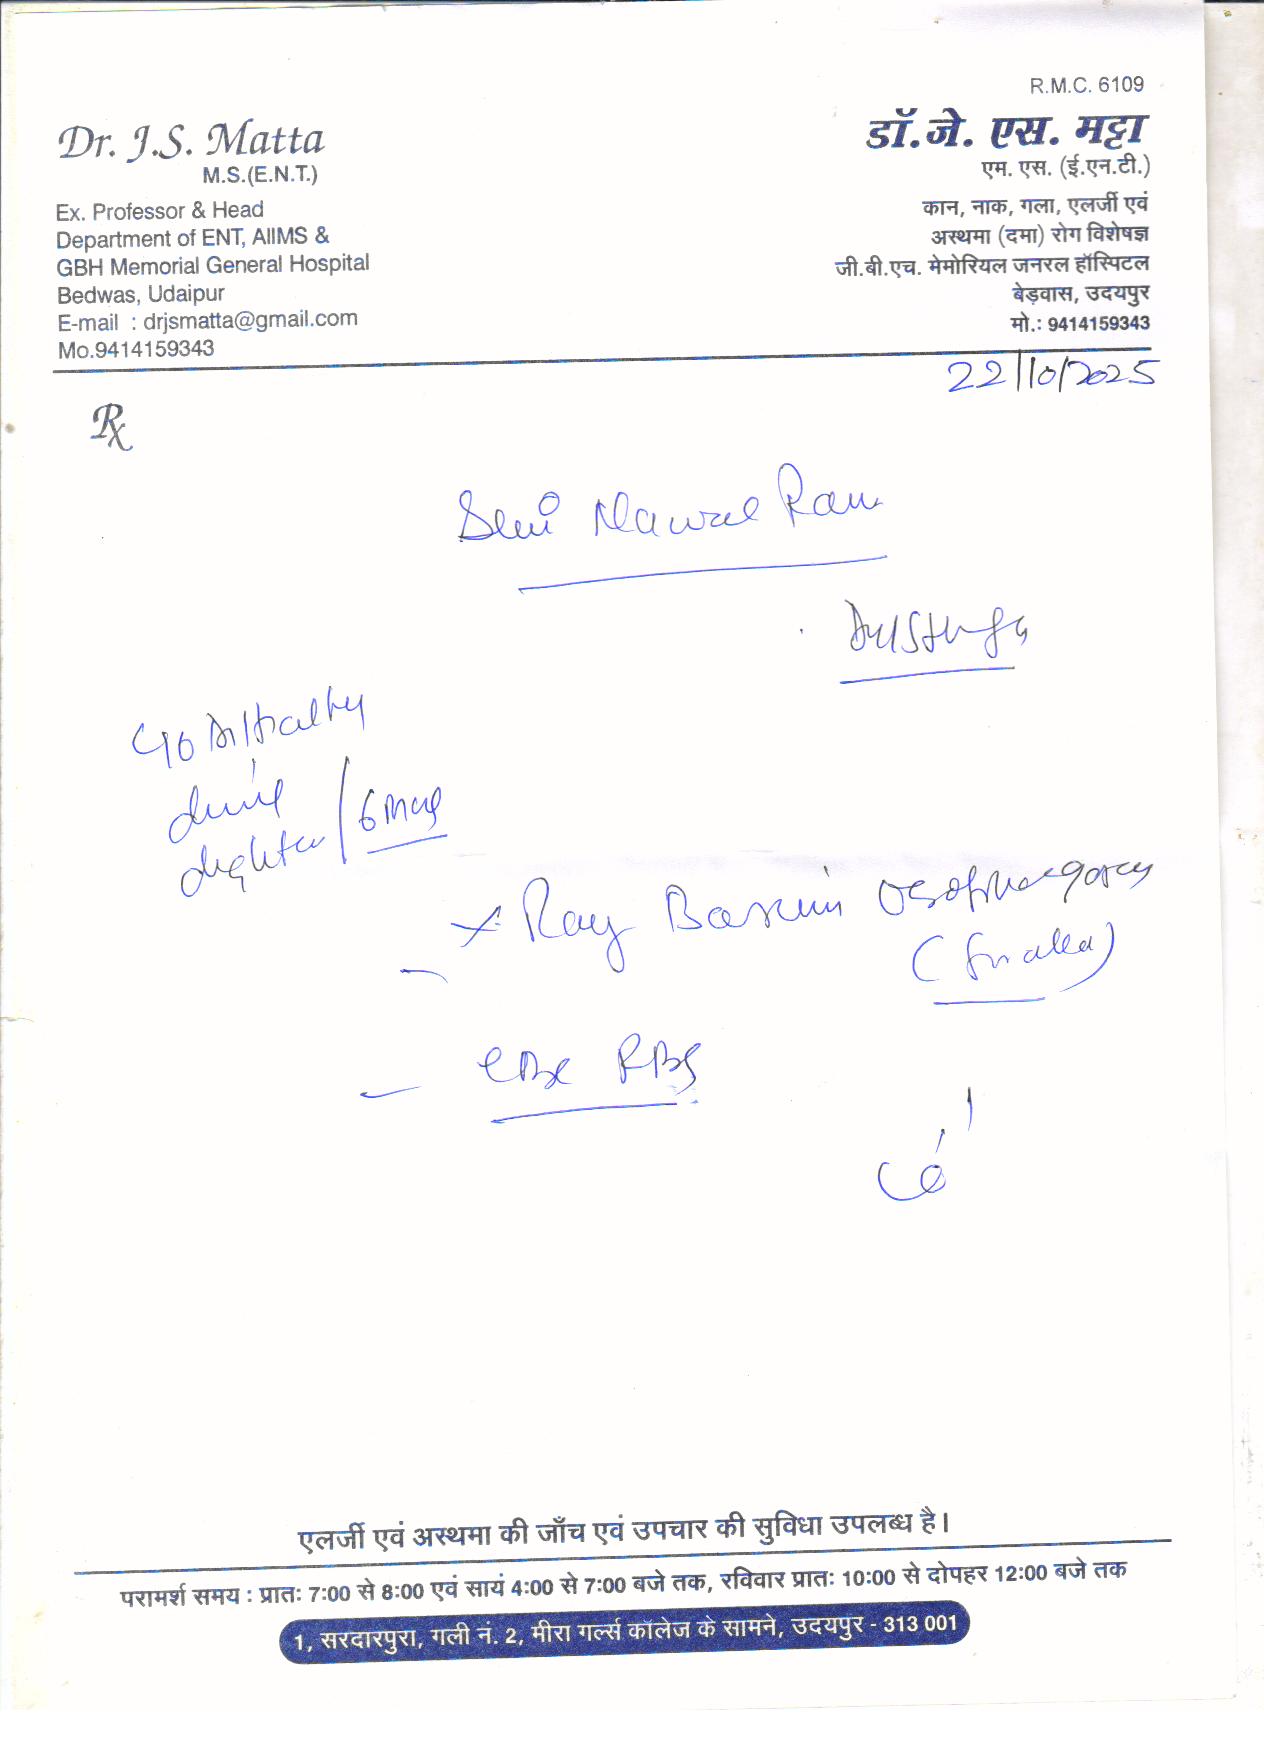 R.M.C. 6109
Dr. J.S. Matta
M.S.(E.N.T.)
Ex. Professor & Head
Department of ENT, AIIMS &
GBH Memorial General Hospital
Bedwas, Udaipur
E-mail : drjsmatta@gmail.com
Mo.9414159343
डॉ.जे. एस. मट्टा
एम. एस. (ई.एन.टी.)
कान, नाक, गला, एलर्जी एवं
अस्थमा (दमा) रोग विशेषज्ञ
जी.बी.एच. मेमोरियल जनरल हॉस्पिटल
बेड़वास, उदयपुर
मो.: 9414159343
22/10/2025
Rx
Shri Nawal Ram
C/o
X Ray Barium
CBC RBS
एलर्जी एवं अस्थमा की जाँच एवं उपचार की सुविधा उपलब्ध है।
परामर्श समय : प्रातः 7:00 से 8:00 एवं सायं 4:00 से 7:00 बजे तक, रविवार प्रातः 10:00 से दोपहर 12:00 बजे तक
1, सरदारपुरा, गली नं. 2, मीरा गर्ल्स कॉलेज के सामने, उदयपुर - 313 001